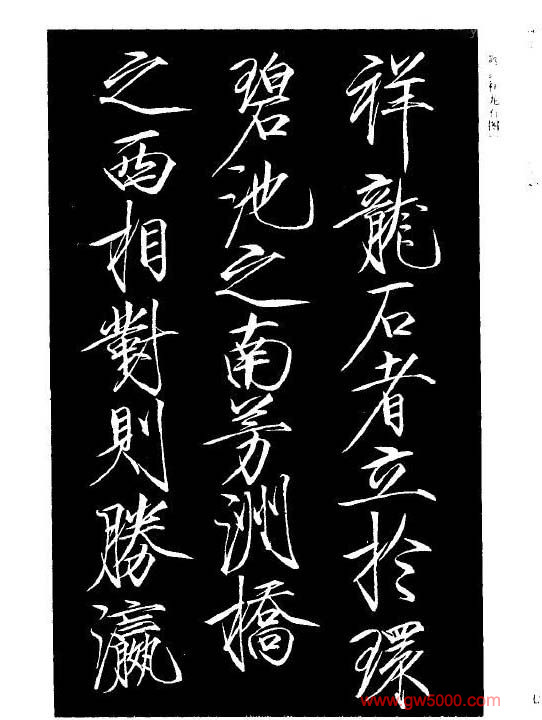 祥龍石者立於環
碧池之南芳洲橋
之西相對則勝瀛
www.gw5000.com